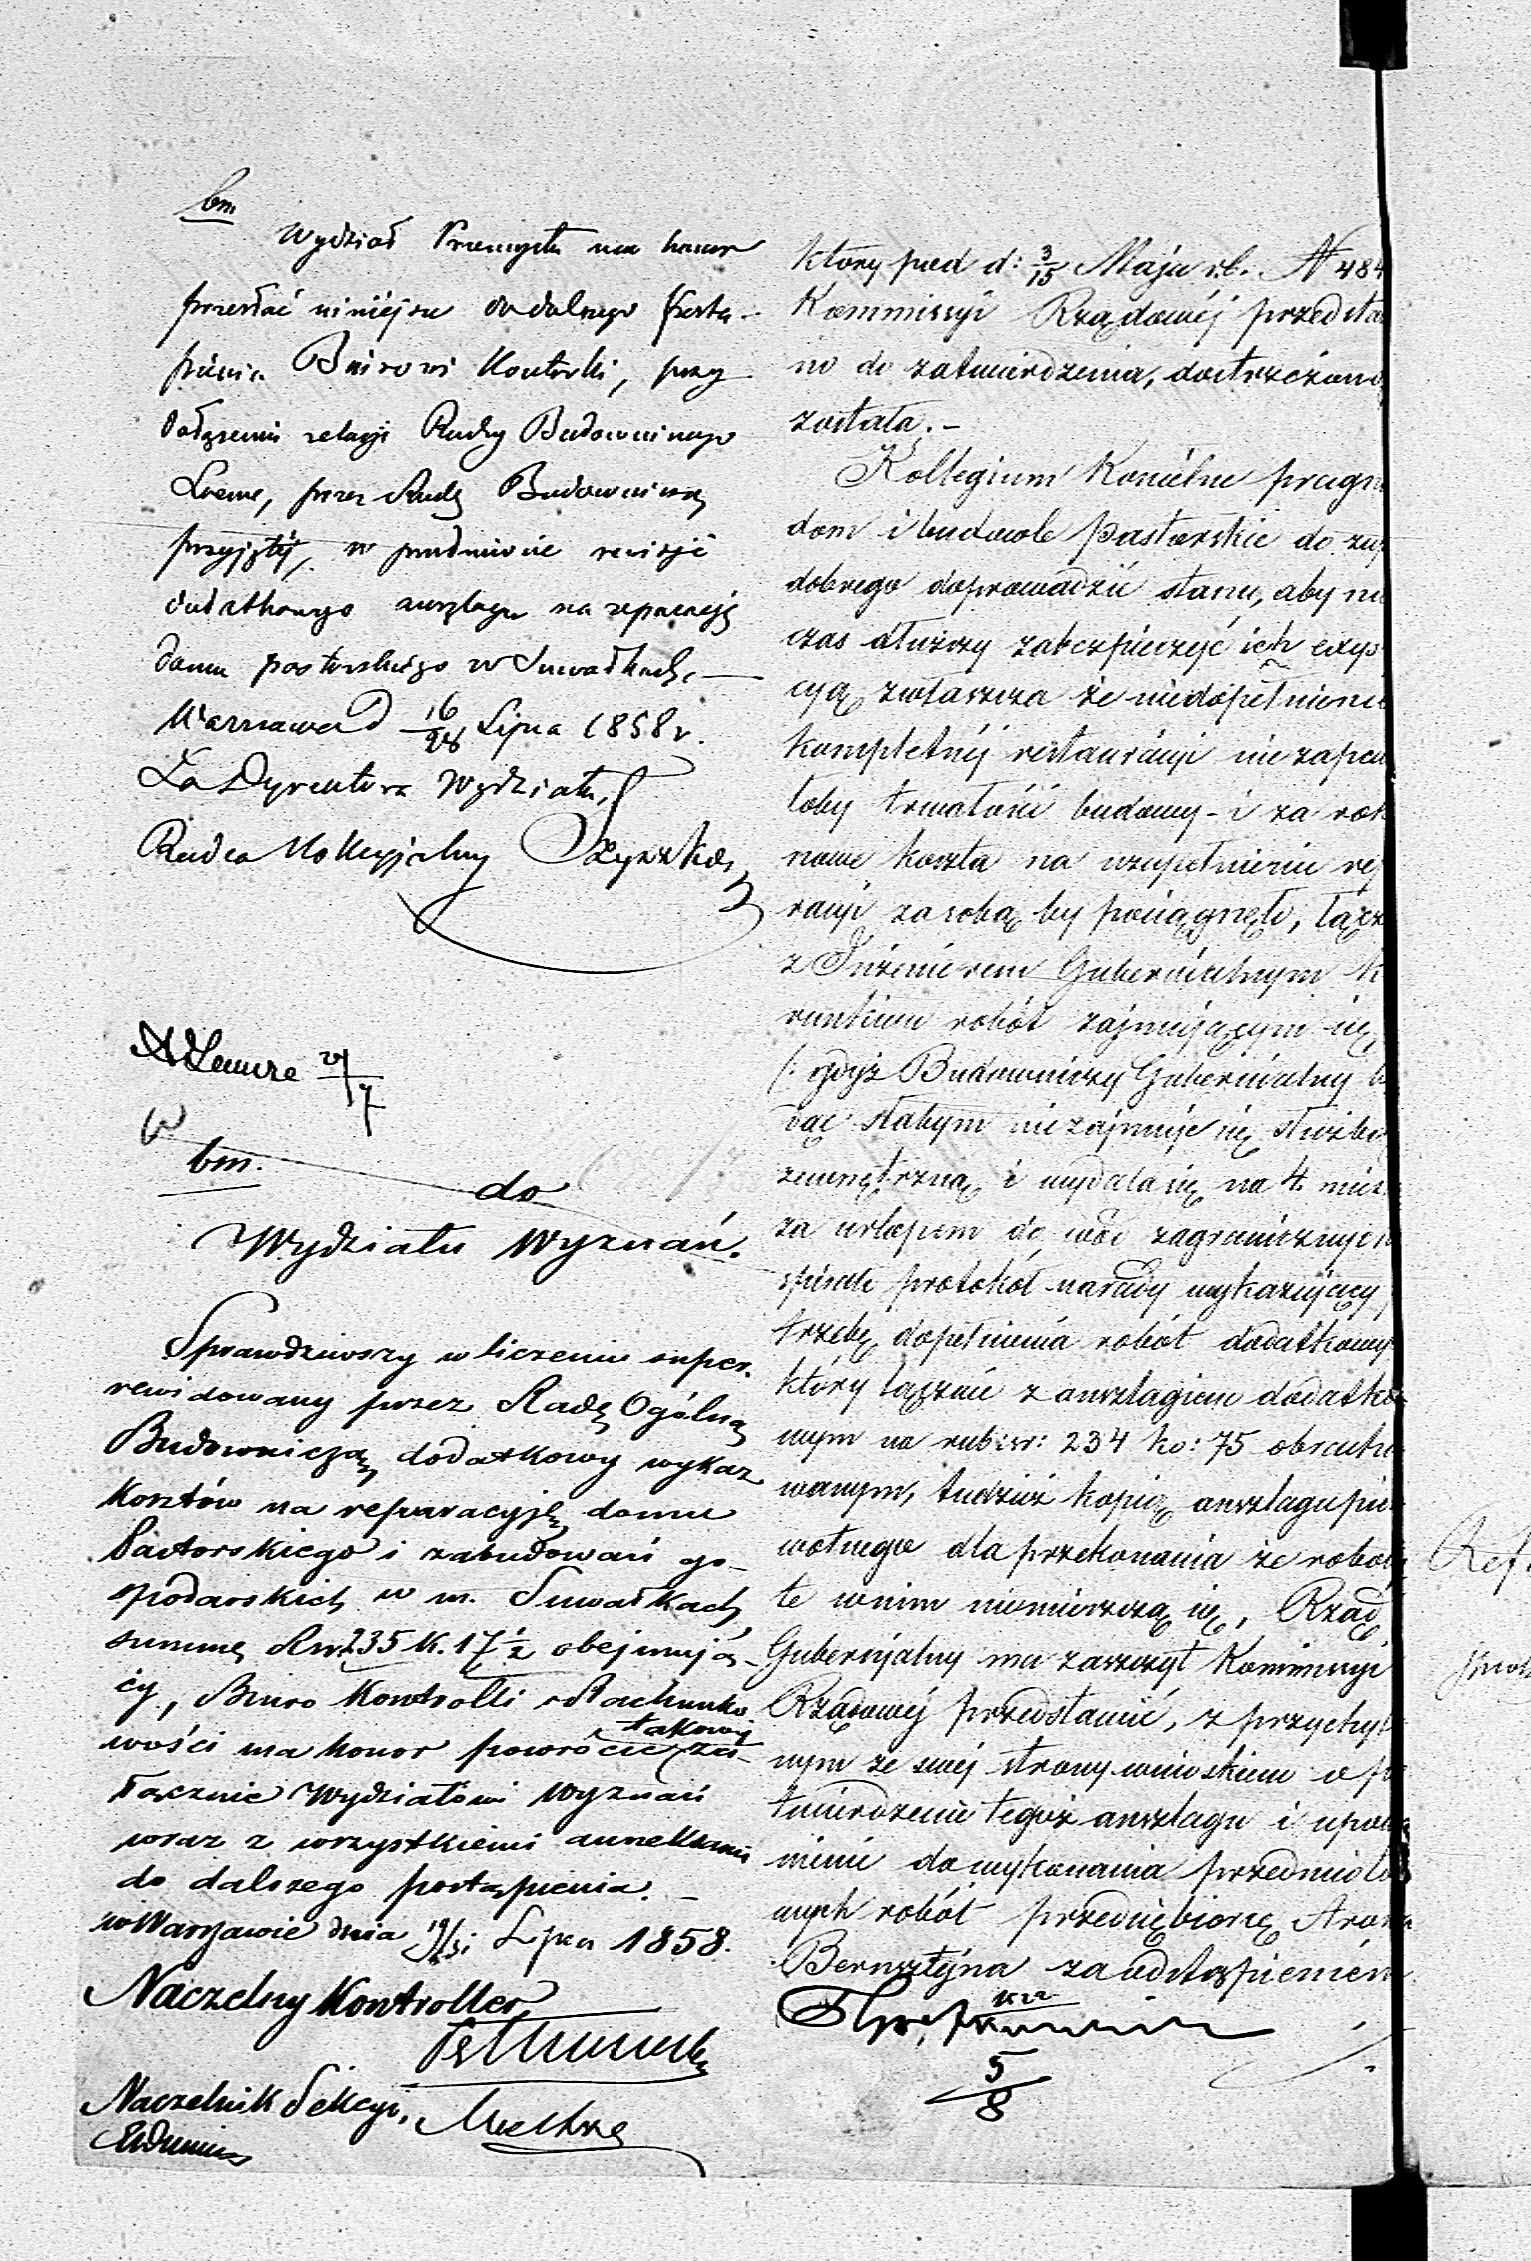 bm
Wydział Przemysłu ma honor
przesłać niniejsze do dalszego postą-
pienia Biurowi Kontroli, przy
dołączeniu relacji Radcy Budowniczego
Loewe, przez Radę Budowniczą
przyjętéj, w przedmiocie rewizji
dodatkowego anszlagu na reparacyję
domu pastorskiego w Suwałkach,
Warszawa d 16/28 Lipca 1858 r.
Za Dyrektora Wydziału,
Radca Kollegjalny
29/7
bm.
do
Wydziału Wyznań.
Sprawdziwszy w liczeniu super-
rewidowany przez Radę Ogólną
Budowniczą, dodatkowy wykaz
kosztów na reparacyję domu
Pastorskiego i zabudowań go-
spodarskich w m. Suwałkach,
summę Rsr 235 k. 17 1/2 obejmują-
cy, Biuro Kontrolli i Rachunko
wości ma honor powrócić takowy za-
łącznie Wydziałowi Wyznań
wraz z wszystkiemi annexami
do dalszego postąpienia. -
w Warszawie dnia 19/31 Lipca 1858.
Naczelny Kontroller,
Naczelnik Sekcyi,
który pod d: 3/15 Maja r.b. N 484
Kommissyi Rządowéj przedsta
no do zatwierdzenia, dostrzeżoną
została. -
Kollegium Kościelne pragn
dom i budowle pastorskie do zu
dobrego doprowadzić stanu, aby na
czas dłuższy zabezpieczyć ich exys
cyą zwłaszcza że niedopełnienie
kompletnéj restauracyi nie zapew
łoby trwałości budowy - i za rok
nowe koszta na uzupełnienie rep
racyi za sobą by pociągnęło, łącz
z Inżenierem Gubernialnym k
runkiem robót zajmującym się
(: gdyż Budowniczy Gubernialny b
dąc słabym nie zajmuje się służbą
zewnętrzną i wydala się na 4. mies
za urlopem do wód zagranicznych
spisało protokół narady wykazujący
trzebę dopełnienia robót dodatkowy
który łącznie z anszlagiem dodatko
wym na rub: sr: 234 ko: 75 obracho
wanym, tudzież kopią anszlagu pier
wotnego dla przekonania że roboty
te w nim niemieszczą się, Rząd
Gubernjalny ma zaszczyt Kommissyi
Rządowéj przedstawić, z przychyl
nym ze swéj strony wnioskiem o po
twierdzenie tegoż anszlagu i upoważ
nienie do wykonania przedmioto
wych robót przedsiębiorcę Arona
Bernsztejna za odstąpieniem
5/8
Ref.